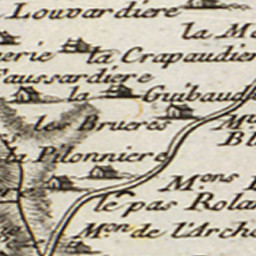 Louvardiere
la M
erie la Crapaudier
aussardiere
la Guibaud
les Brueres
Bl
la Pilonniere
M.ons
le pas Rolan
M.on de L'Arch